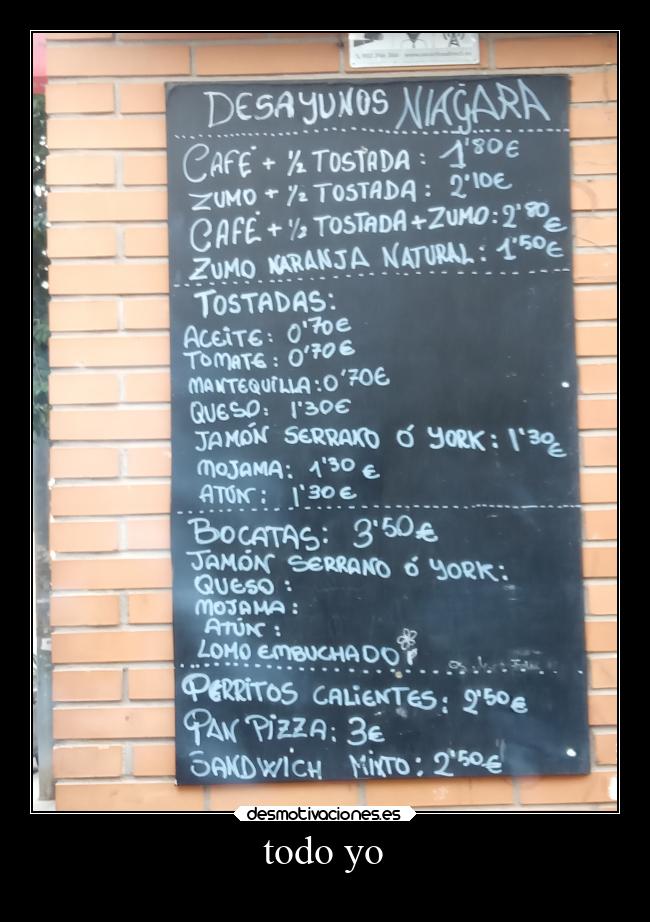 DESAYUNOS NIAGARA
CAFE + ½ TOSTADA : 1'80€
ZUMO + ½ TOSTADA : 2'10€
CAFE + ½ TOSTADA + ZUMO : 2'80 €
ZUMO NARANJA NATURAL : 1'50€
TOSTADAS:
ACEITE: 0'70€
TOMATE : 0'70€
MANTEQUILLA : 0'70€
QUESO: 1'30€
JAMÓN SERRANO Ó YORK : 1'30€
MOJAMA: 1'30 €
ATÚN : 1'30€
BOCATAS: 3'50€
JAMÓN SERRANO Ó YORK:
QUESO :
MOJAMA :
ATÚN :
LOMO EMBUCHADO
PERRITOS CALIENTES: 2'50€
PAN PIZZA: 3€
SANDWICH MIXTO : 2'50€
desmotivaciones.es
todo yo